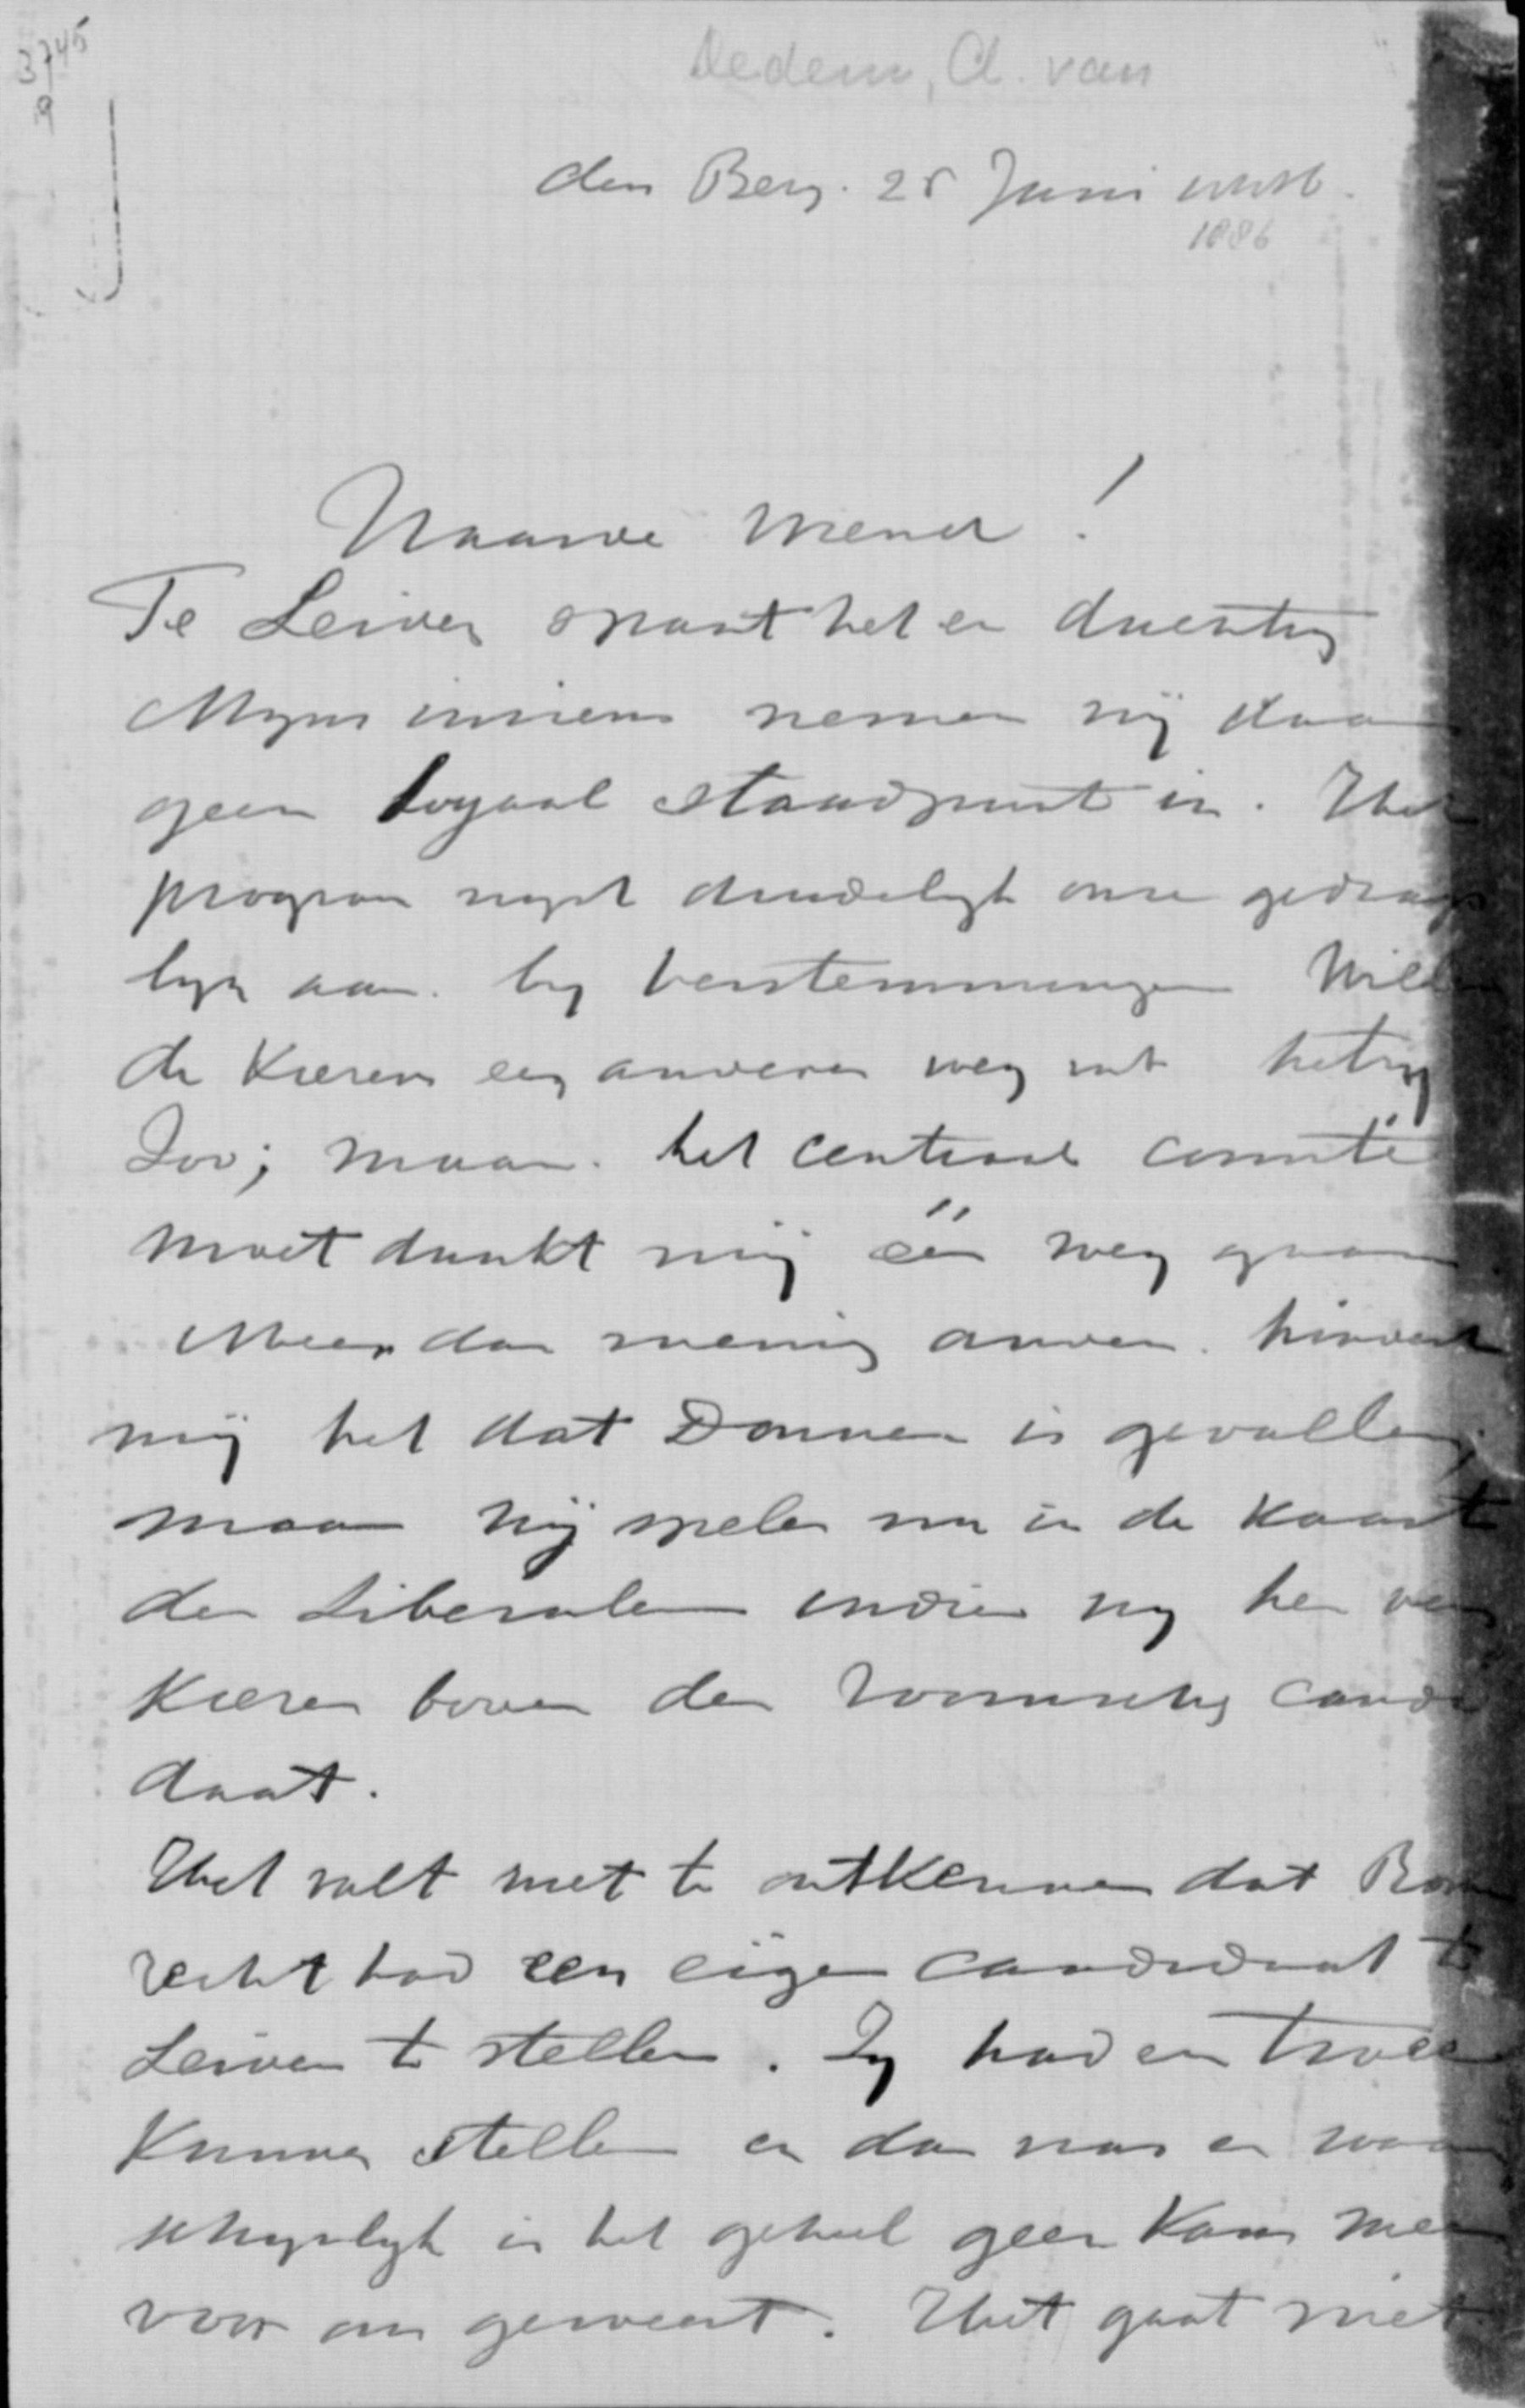 3745
9
Dedem, A. van
den Berg. 25 Juni
1886
Waarde Vriend!
Te Leiden spant het er duchtig
Mijns inziens nemen wij daar
geen loyaal standpunt in. Het
program wijst duidelyk onze gedrags
lyn aan by herstemmingen Wilden
de kiezers een anderen weg uit het zy
zoo; maar het centraal comité
moet dunkt mij één weg gaan.
Meer dan menig ander hindert
mij het dat Donner is gevallen,
maar wij spelen nu in de kaart
der Liberalen indien wy hen ver
kiezen boven den roomschen candi
daat.
Het valt niet te ontkennen dat Rome
recht had een eigen candidaat te
Leiden te stellen. Zy had er twee
kunnen stellen en dan was er waar
schynlyk in het geheel geen kans meer
voor ons geweest. Het gaat niet